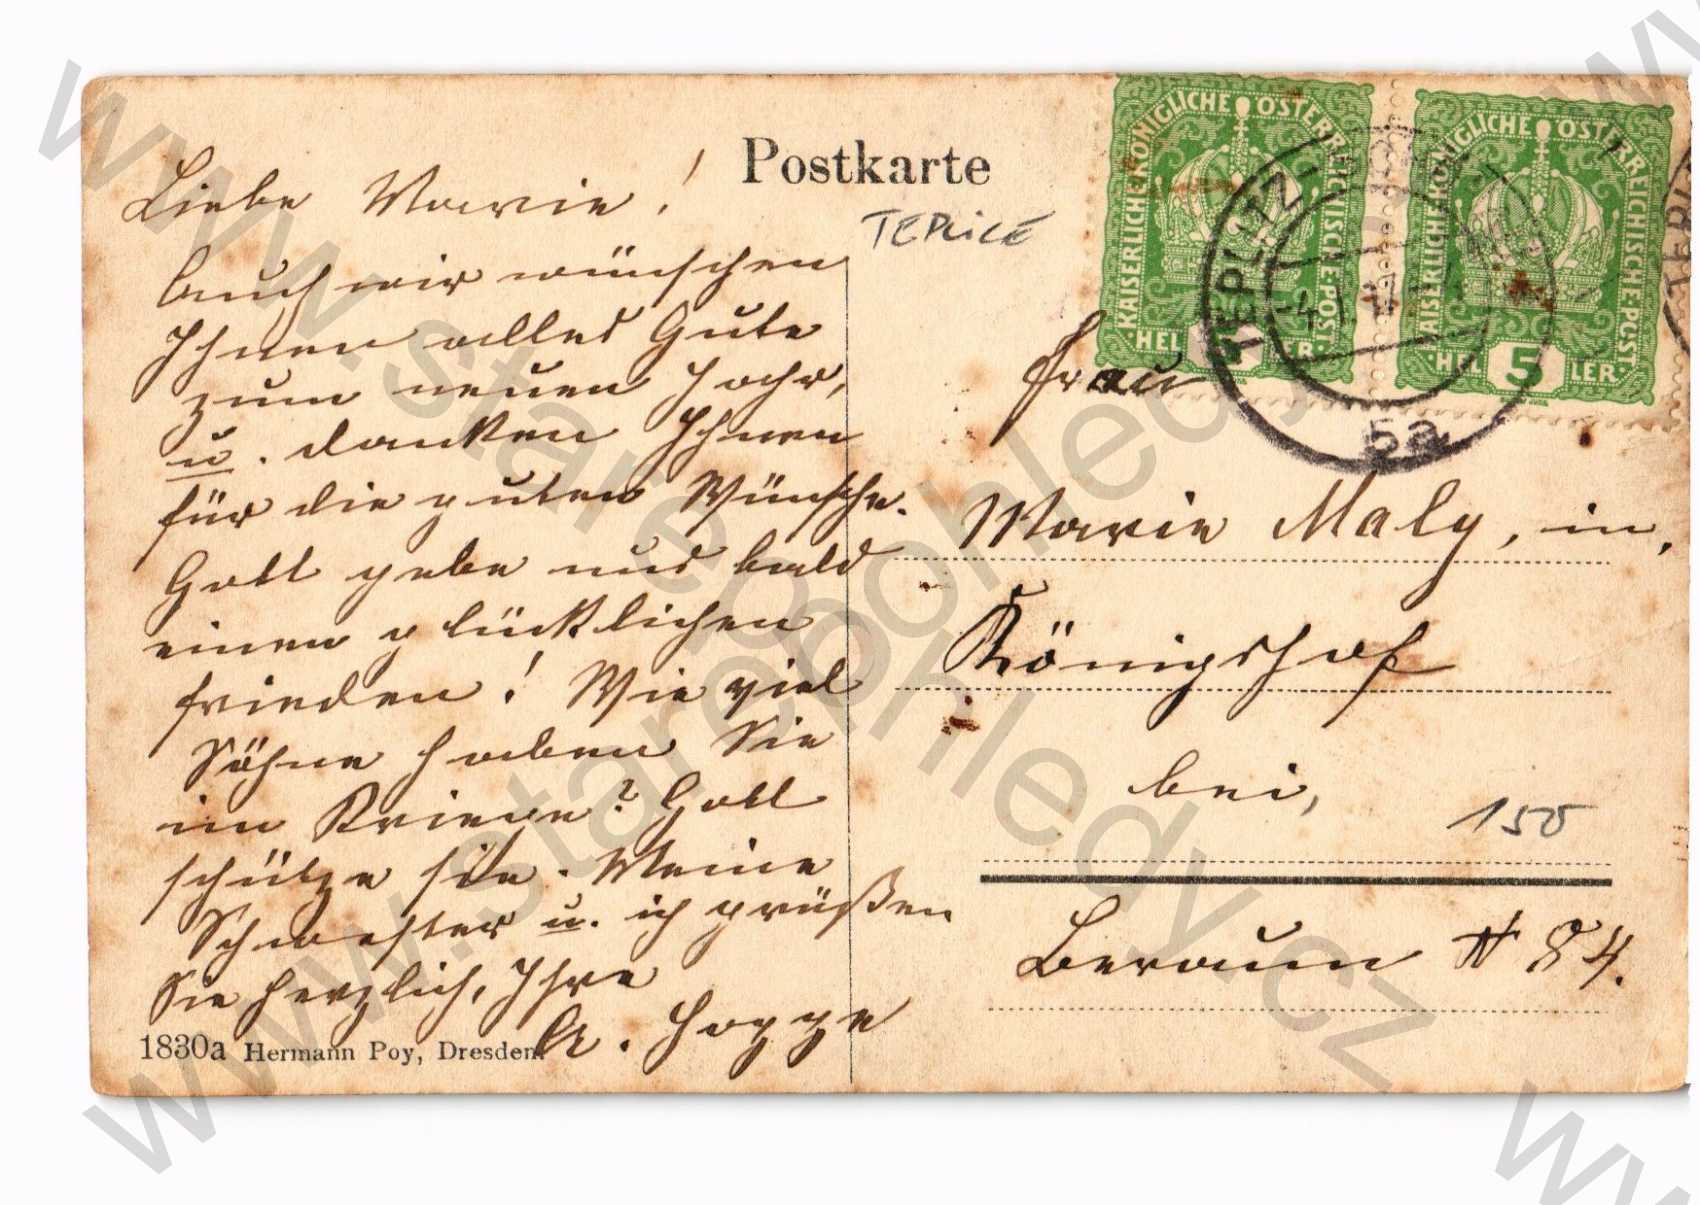 Postkarte
TEPLICE
Liebe Marie!
Auch wir wünschen
Ihnen alles Gute
zum neuen Jahr,
u. danken Ihnen
für die guten Wünsche.
Gott gebe uns bald
einen glücklichen
frieden! Wie viel
Söhne haben Sie
im Kriege? Gott
schütze sie. Meine
Schwester u. ich grüßen
Sie herzlich, Ihre
A. Hoppe
1830a Hermann Poy, Dresden.
KAISERLICHE KÖNIGLICHE ÖSTERREICHISCHE POST
HELLER
KAISERLICHE KÖNIGLICHE ÖSTERREICHISCHE POST
HELLER 5
TEPLITZ-
5a
Frau
Marie Maly, in,
Königshof
bei,
150
Beraun # 84.
www.starepohledy.cz
www.starepohledy.cz